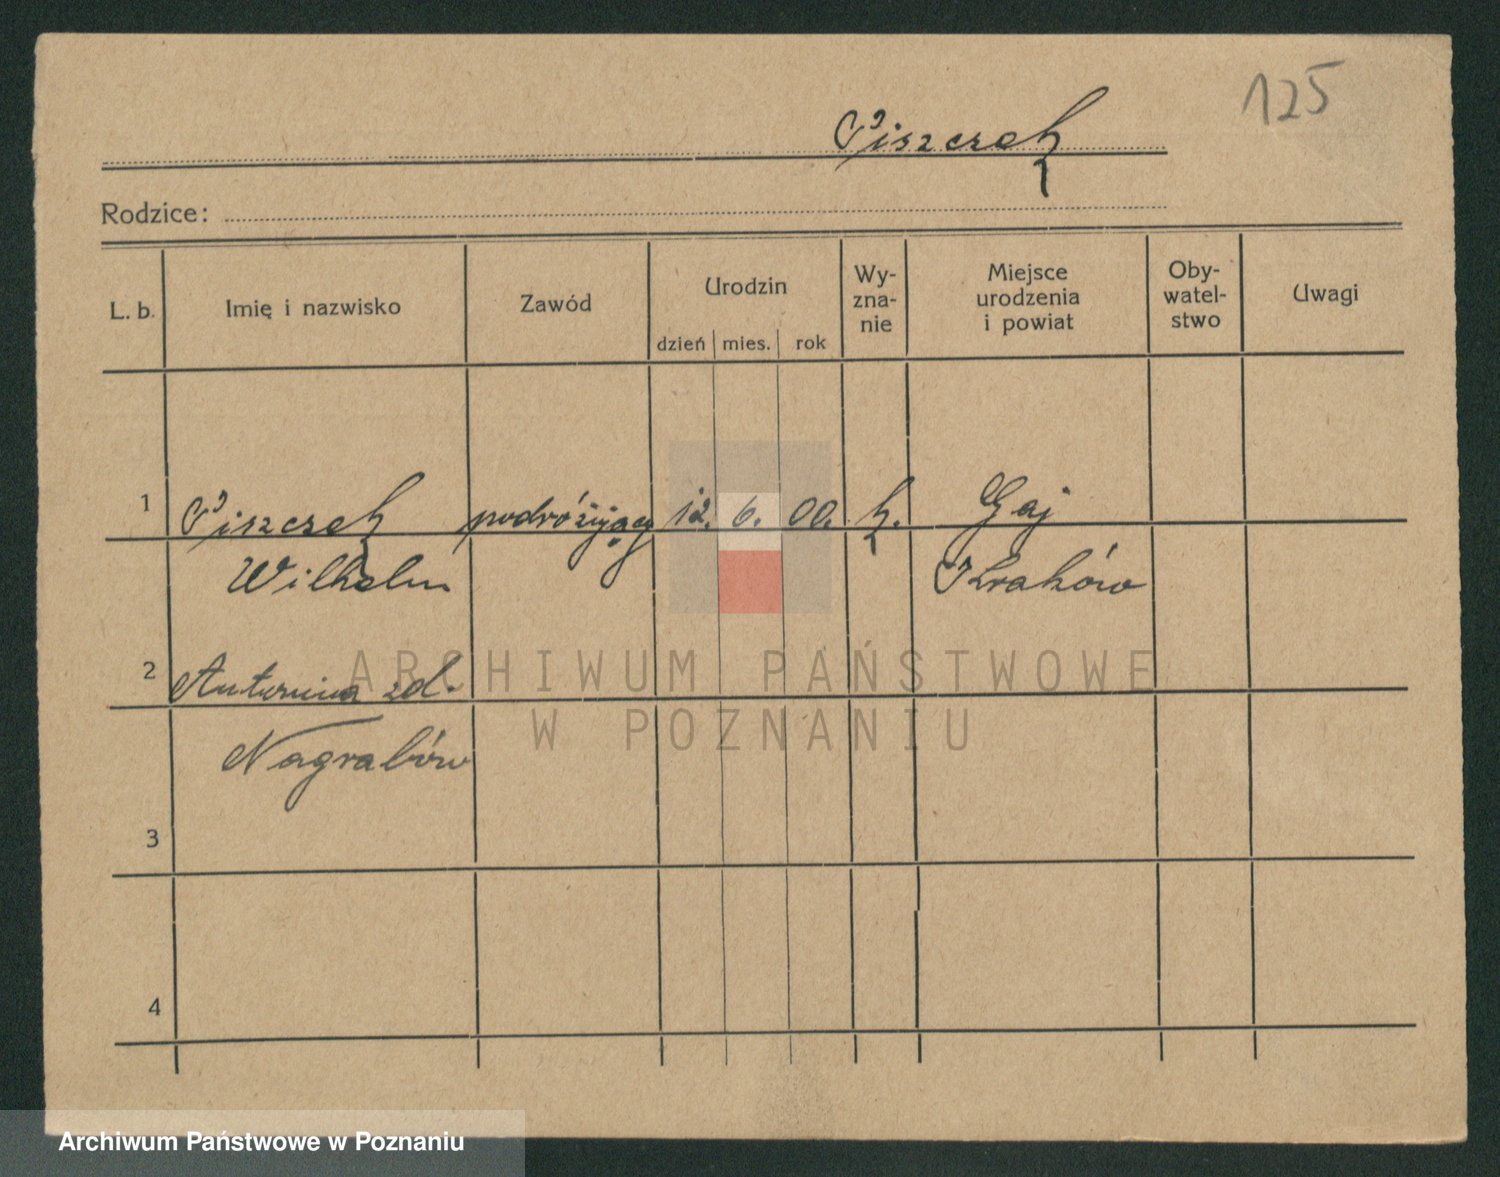 125
Piszczek
Rodzice:
L. b. Imię i nazwisko Zawód Urodzin dzień mies. rok Wy-zna-nie Miejsce urodzenia i powiat Oby-watel-stwo Uwagi
1 Piszczek podróżujący 12. 6. 00. k. Gaj
Wilhelm Kraków
2 Antonina zd.
Nagrabów
3
4
ARCHIWUM PAŃSTWOWE
W POZNANIU
Archiwum Państwowe w Poznaniu